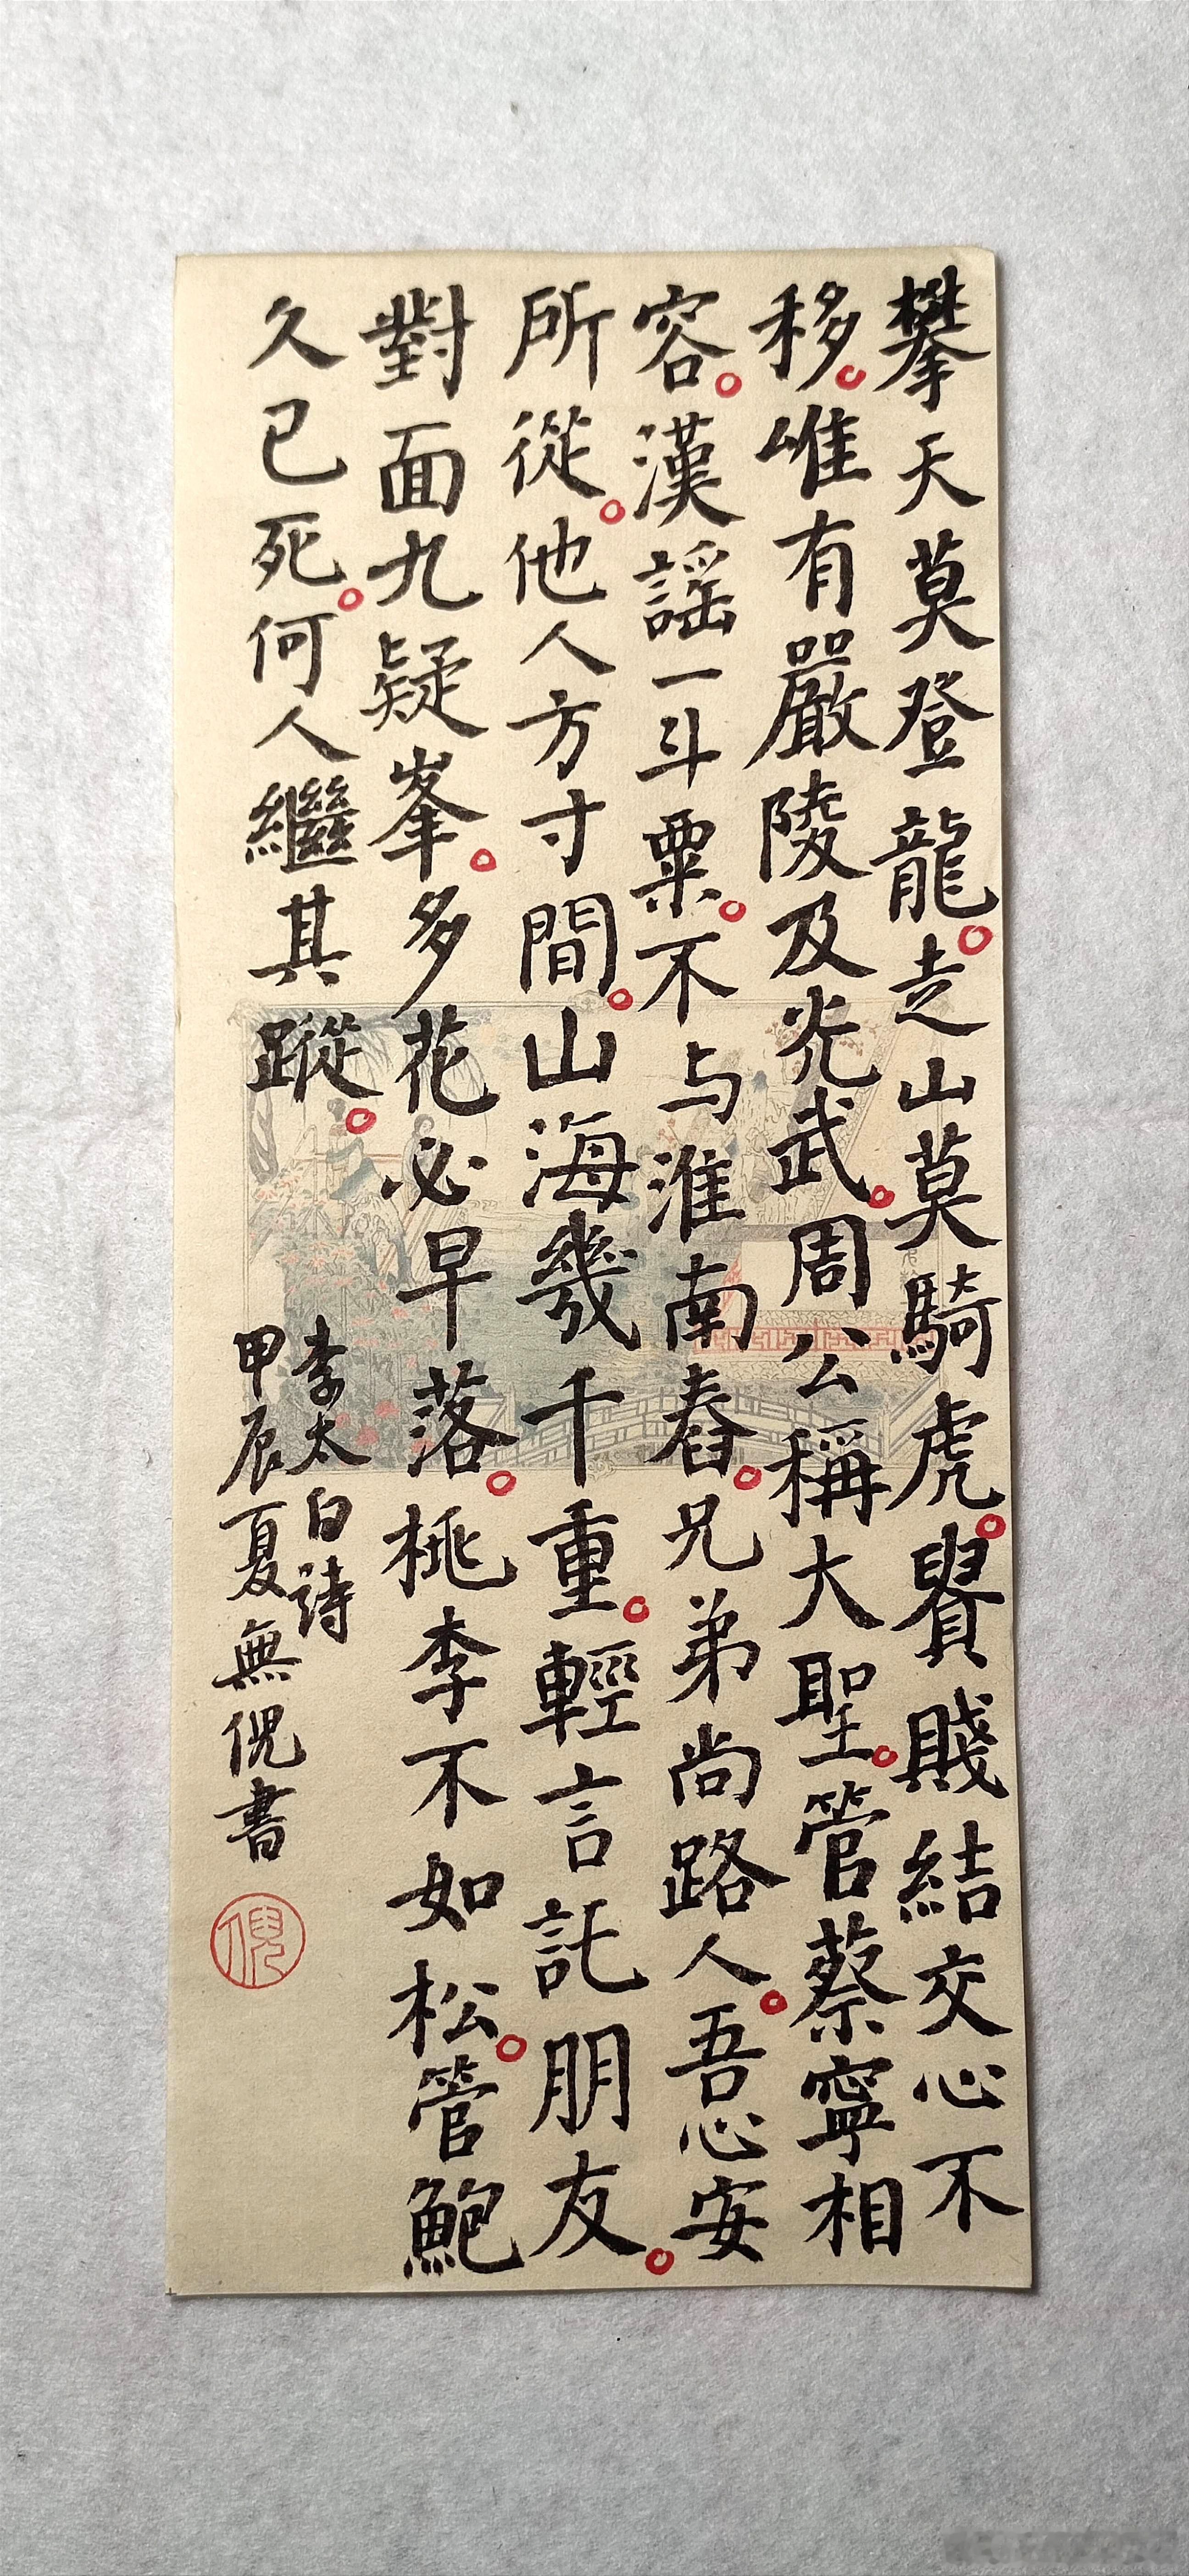 攀天莫登龍。走山莫騎虎。貴賤結交心不
移。唯有嚴陵及光武。周公稱大聖。管蔡寧相
容。漢謠一斗粟。不与淮南舂。兄弟尚路人。吾心安
所從。他人方寸間。山海幾千重。輕言託朋友。
對面九疑峯。多花必早落。桃李不如松。管鮑
久已死。何人繼其蹤。
李太白詩
甲辰夏無倪書
倪